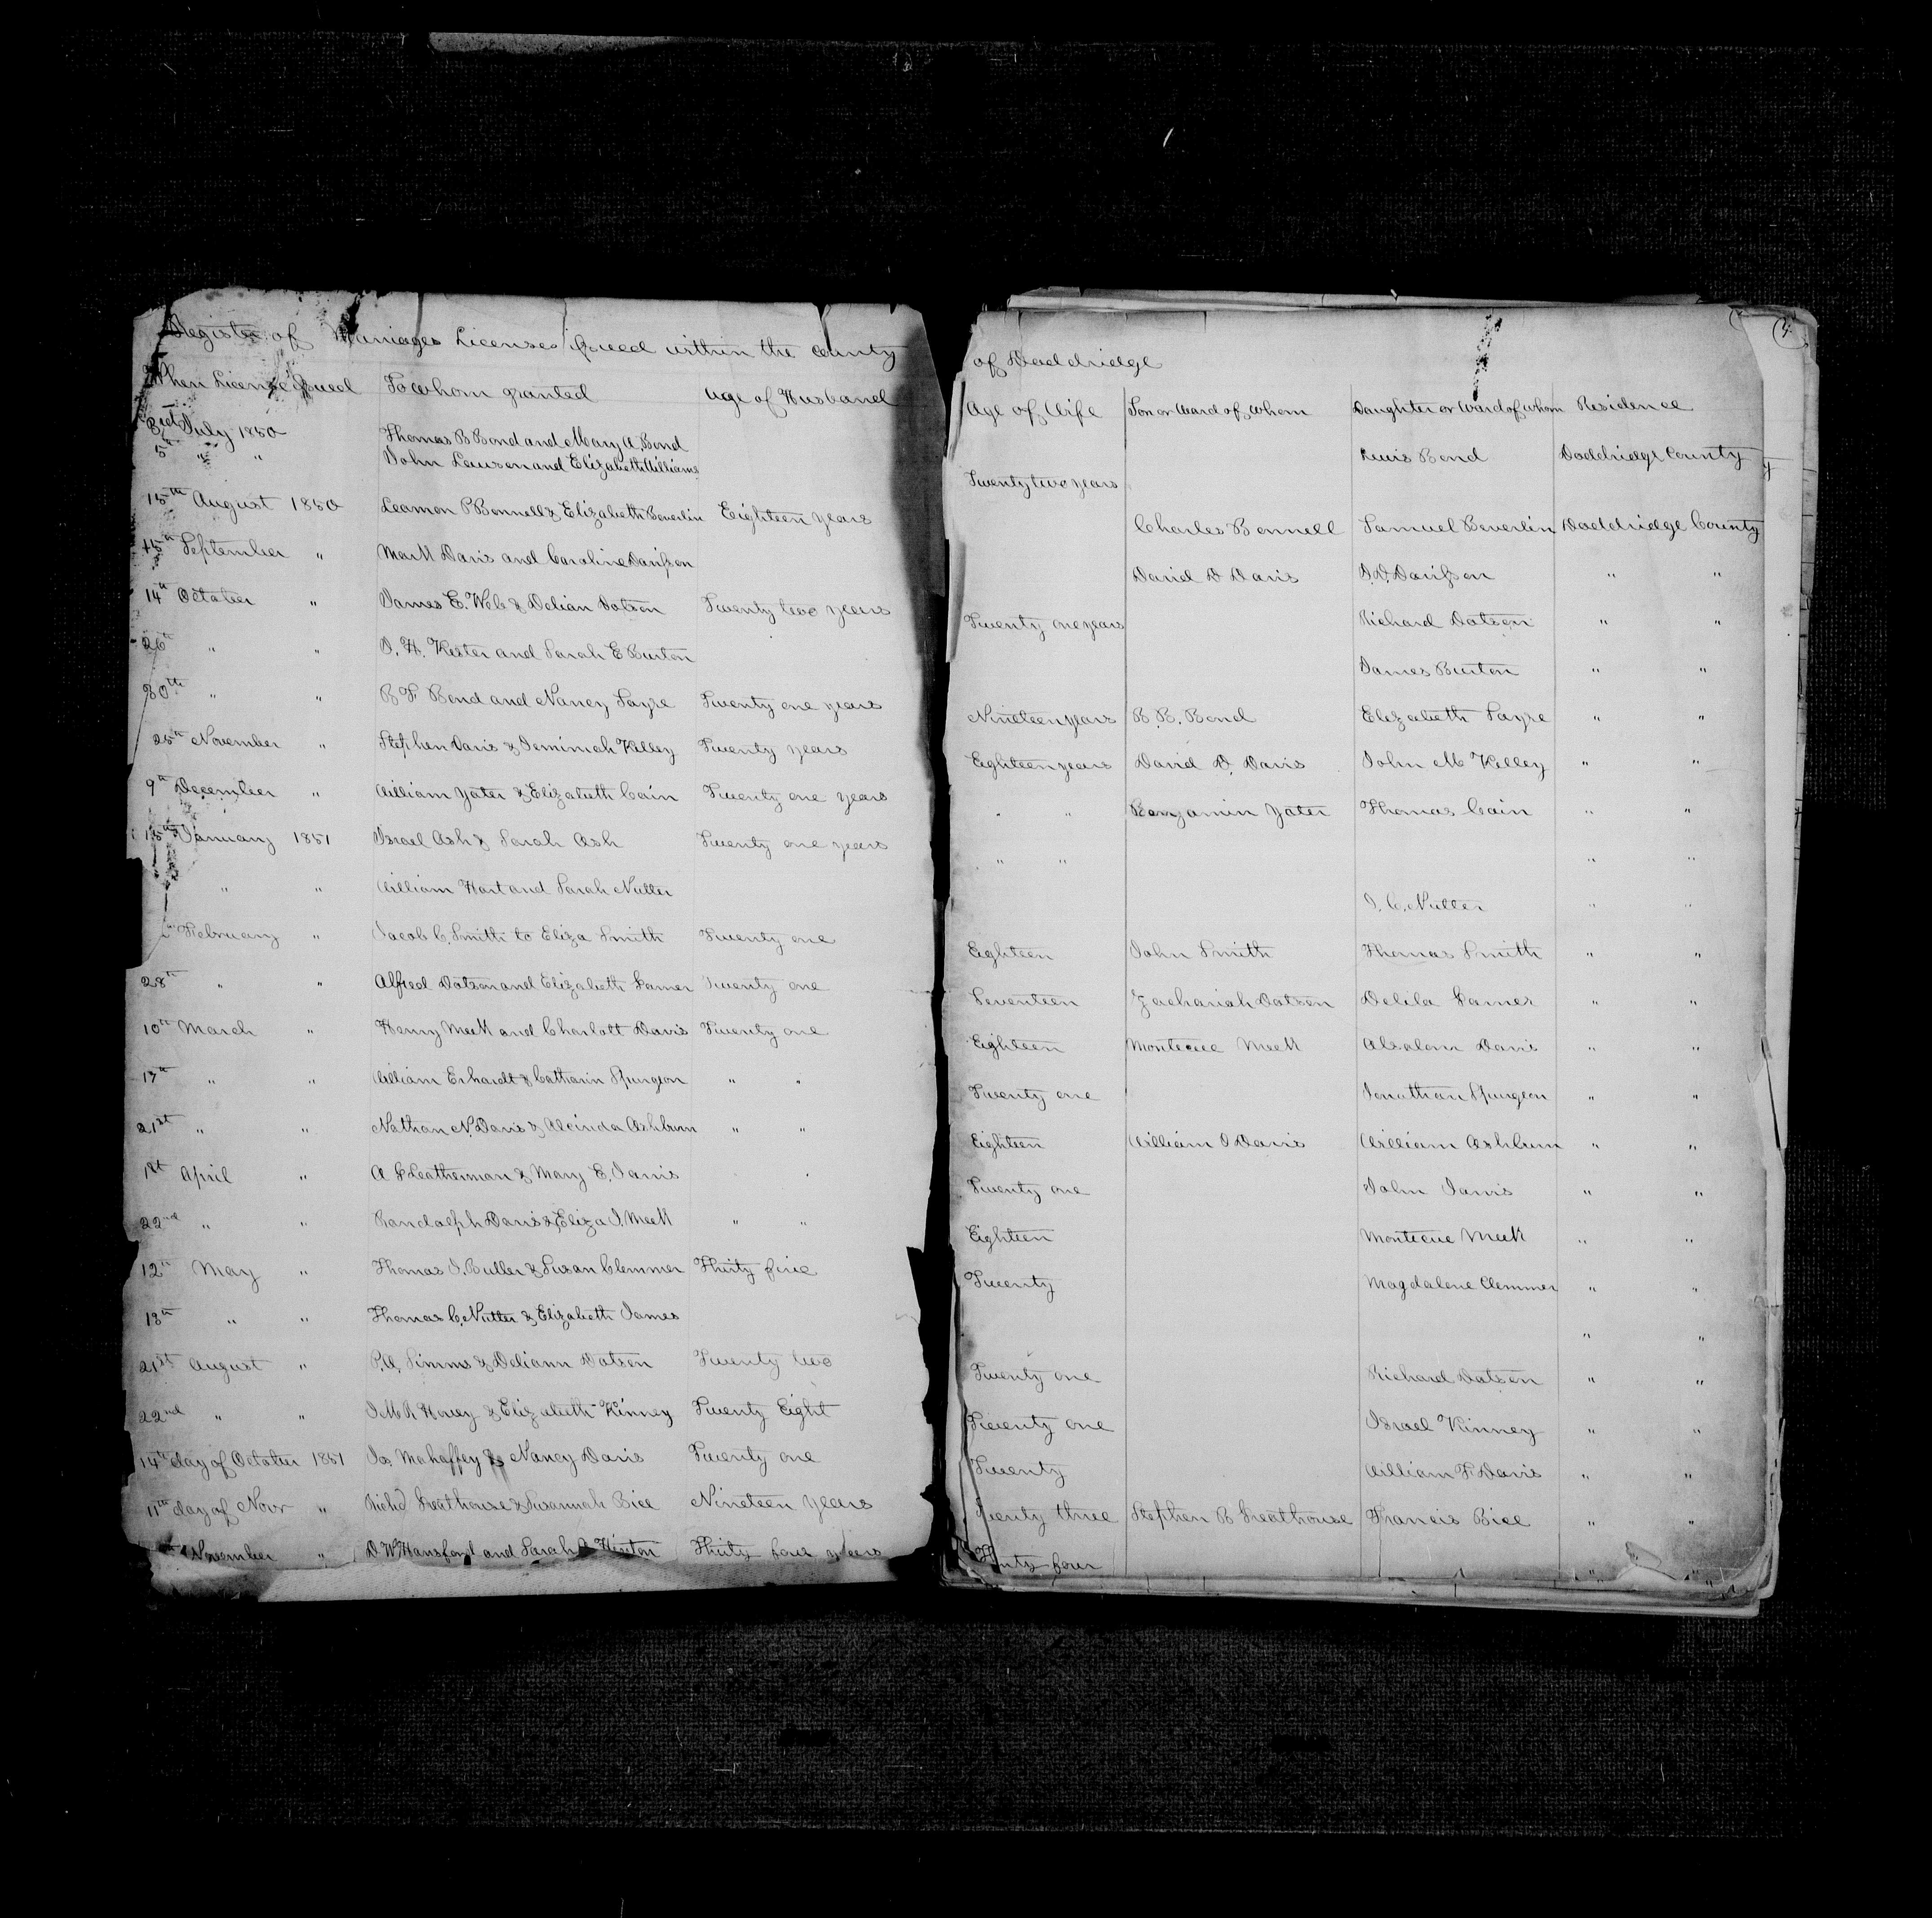 Register of Marriages Licenses issued within the county
When License issued To whom granted Age of Husband
3rd July 1850 Thomas B Bond and Mary A. Bond
5th " " John Lawson and Elizabeth Williams
15th August 1850 Leamon P Bonnell & Elizabeth Beverlin Eighteen years
15th September " Mark Davis and Caroline Davisson
14th October " James E. Webb & Delian Dotson Twenty two years
26th " " D. H. Kester and Sarah E Burton
30th " " B F Bond and Nancy Sayre Twenty one years
25th November " Stephen Davis & Jemimah Kelley Twenty years
9th December " William Yater & Elizabeth Cain Twenty one years
15th January 1851 Israel Ash & Sarah Ash Twenty one years
" " William Hart and Sarah Nutter
February " Jacob C. Smith to Eliza Smith Twenty one
28th " " Alfred Dotson and Elizabeth Garner Twenty one
10th March " Henry Meek and Charlott Davis Twenty one
17th " " William Erhardt & Catharin Spurgeon " "
21st " " Nathan N. Davis & Alcinda Ashburn " "
1st April " A Leatherman & Mary E. Jarvis
22nd " " Randolph Davis & Eliza J. Meek " "
12th May " Thomas J. Butler & Susan Clemmer Thirty five
13th " " Thomas C. Nutter & Elizabeth James
21st August " P. A. Simms & Deliann Dotson Twenty two
22nd " " J M R Hovey & Elizabeth Kinney Twenty Eight
14th day of October 1851 Jas. Mahaffey & Nancy Davis Twenty one
11th day of Novr " Richd Greathouse & Susannah Bice Nineteen years
November " D W Hansford and Sarah Hinton Thirty four years
of Doddridge
Age of Wife Son or Ward of whom Daughter or Ward of whom Residence
Lewis Bond Doddridge County
Twenty two years
Charles Bonnell Samuel Beverlin Doddridge County
David D Davis J. D. Davisson " "
Twenty one years Richard Dotson " "
James Burton " "
Nineteen years B. B. Bond Elizabeth Sayre " "
Eighteen years David D. Davis John M Kelley " "
" " Benjamin Yater Thomas Cain " "
" " " "
J. C. Nutter " "
Eighteen John Smith Thomas Smith " "
Seventeen Zachariah Dotson Delila Garner " "
Eighteen Montecue Meek Absalom Davis " "
Twenty one Jonathan Spurgeon " "
Eighteen William J Davis William Ashburn " "
Twenty one John Jarvis " "
Eighteen Montecue Meek " "
Twenty Magdalene Clemmer " "
" "
Twenty one Richard Dotson " "
Twenty one Israel Kinney " "
Twenty William F. Davis " "
Twenty three Stephen B Greathouse Francis Bice " "
Thirty four " "